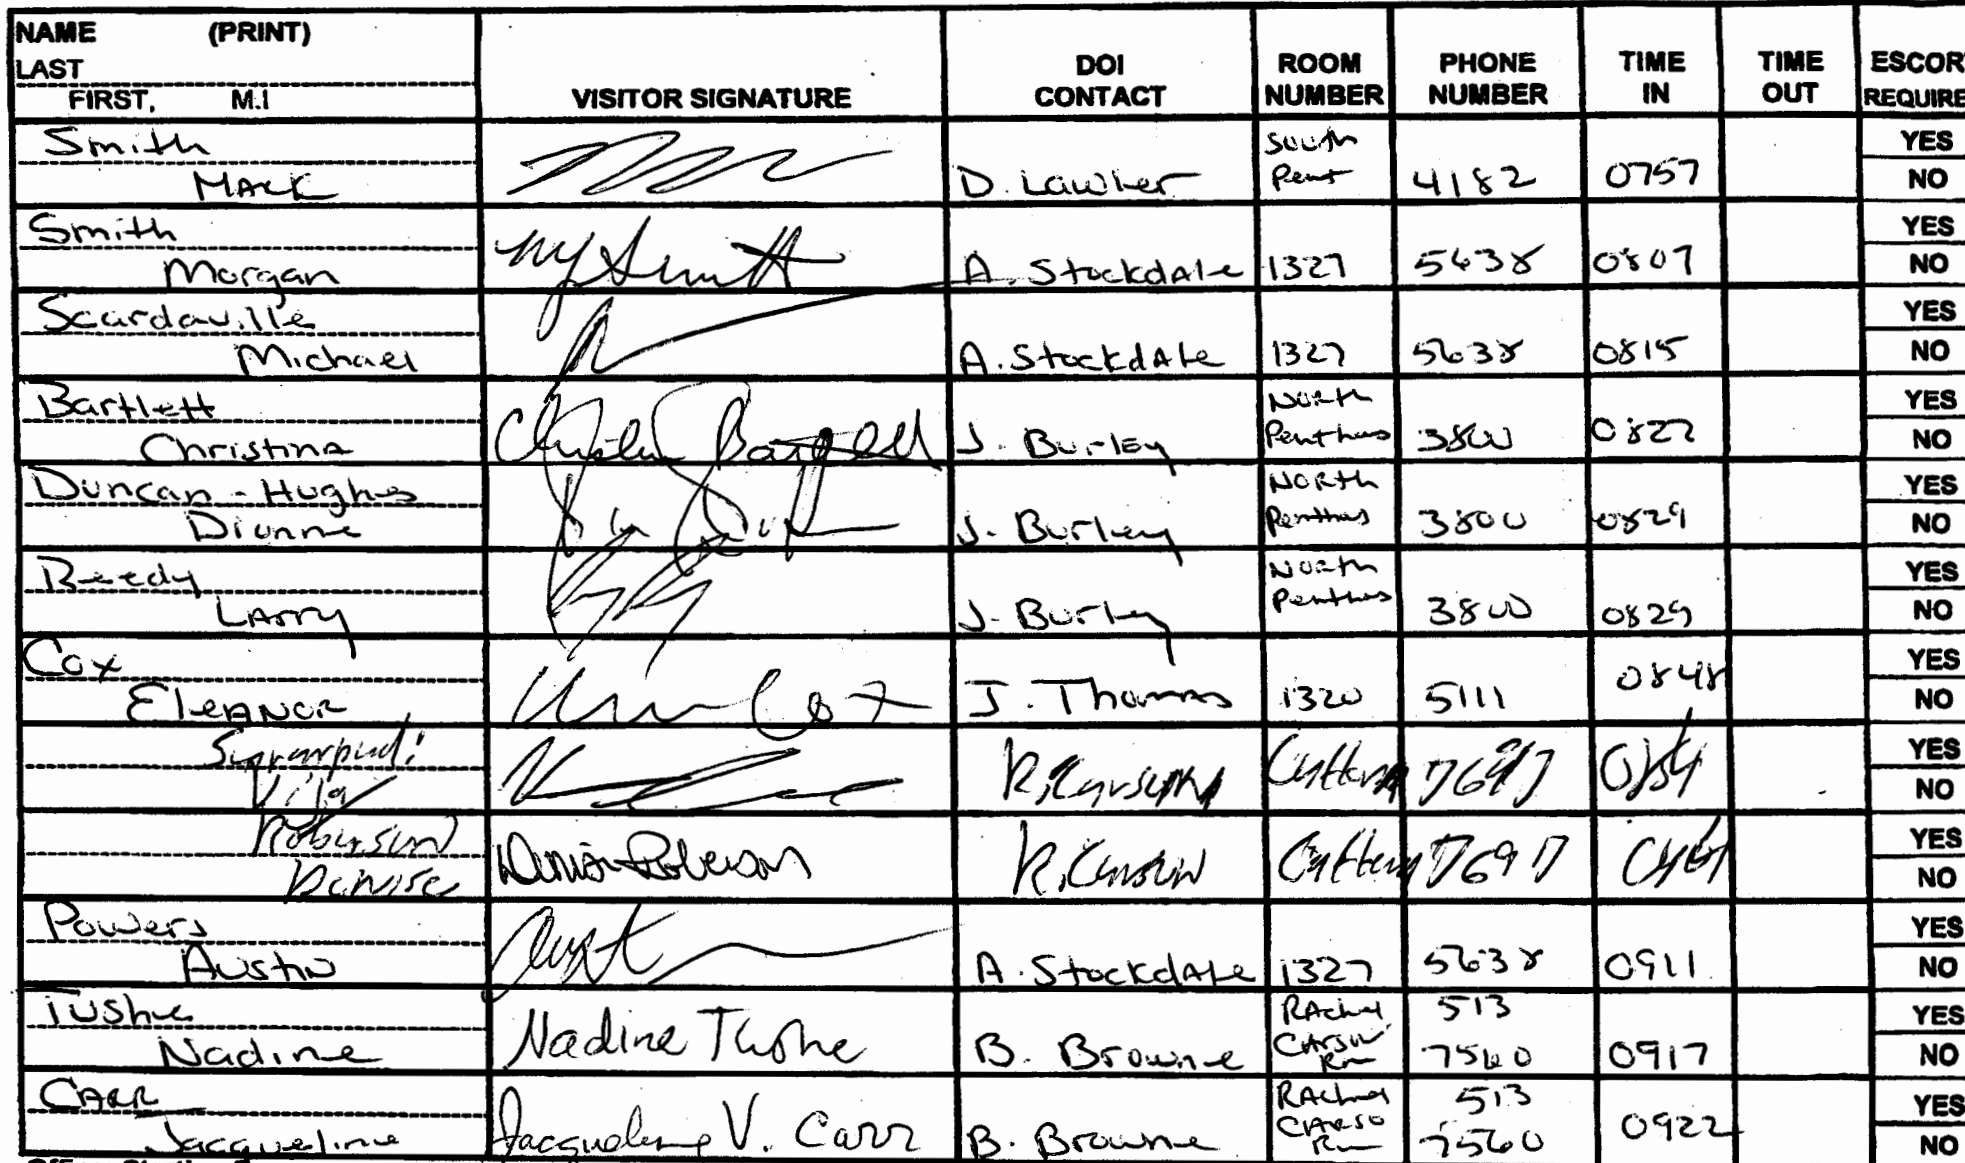 NAME (PRINT)
LAST
FIRST, M.I
VISITOR SIGNATURE
DOI
CONTACT
ROOM
NUMBER
PHONE
NUMBER
TIME
IN
TIME
OUT
ESCOR
REQUIRE
Smith
Mack
D. Lawler
South
Pent
4182
0757
YES
NO
Smith
Morgan
A. Stockdale
1327
5638
0807
YES
NO
Scardaville
Michael
A. Stockdale
1327
5638
0815
YES
NO
Bartlett
Christina
Bartlett
J. Burley
North
Penthus
3800
0822
YES
NO
Duncan-Hughes
Dionne
J. Burley
North
Penthus
3800
0829
YES
NO
Beedy
Larry
J. Burley
North
Penthus
3800
0829
YES
NO
Cox
Eleanor
Cox
J. Thomas
1320
5111
0848
YES
NO
7697
YES
NO
Robinson
Denise
7697
YES
NO
Powers
Austin
A. Stockdale
1327
5638
0911
YES
NO
Tushe
Nadine
Nadine Tushe
B. Browne
Rachel
Carson
Rm
513
7560
0917
YES
NO
Carr
Jacqueline
Jacqueline V. Carr
B. Browne
Rachel
Carso
Rm
513
7560
0922
YES
NO